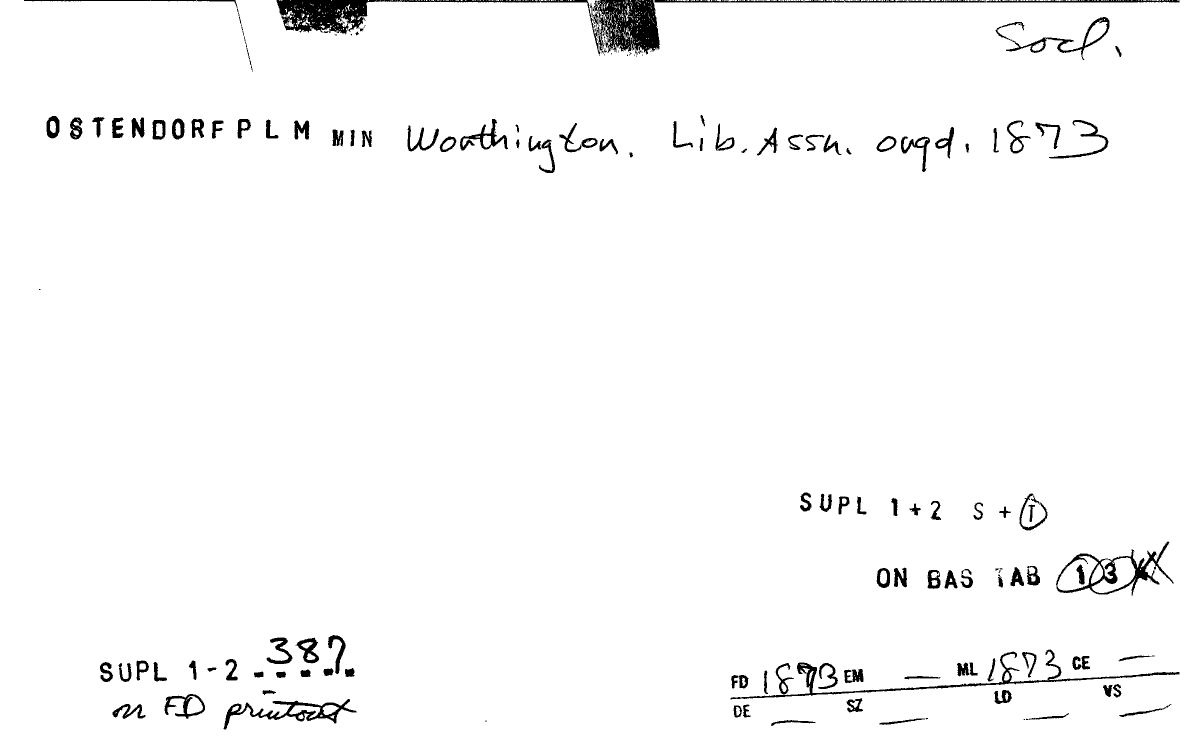 Socl.
OSTENDORF P L M MIN Worthington. Lib. Assn. orgd. 1873
SUPL 1+2 S + T
ON BAS TAB 1 3
SUPL 1-2 387
on FD printout
FD 1873 EM — ML 1873 CE —
DE — SZ — LD — VS —